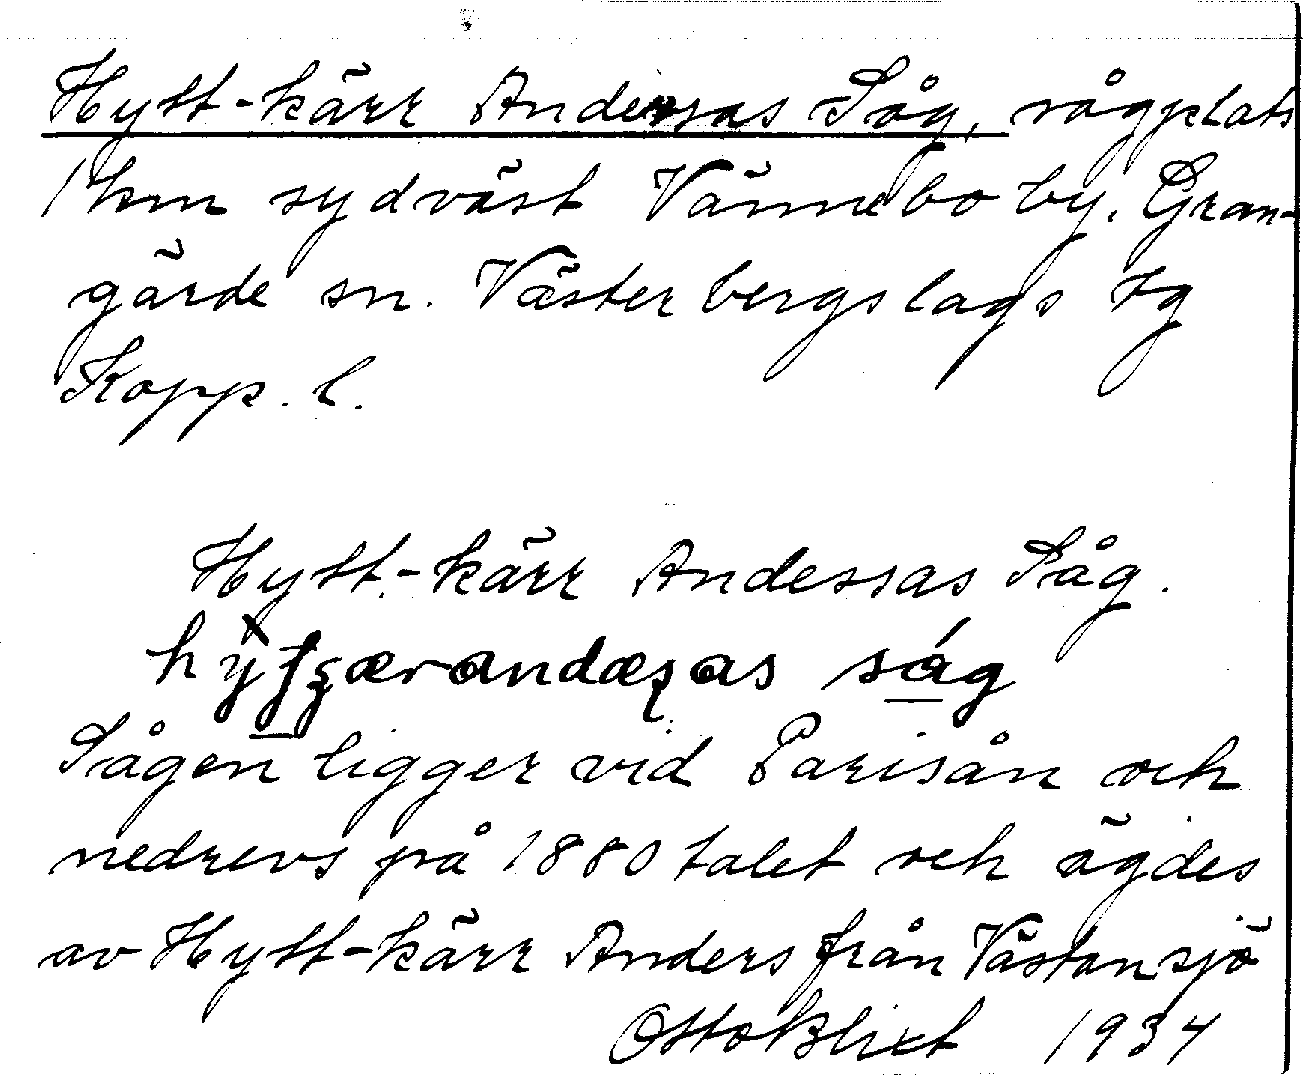 Hytt-kärr Andersas Såg, sågplats
1 km sydväst Vännebo by. Gran-
gärde sn. Västerbergslags tg
Kopp. l.
Hytt-kärr Andessas Såg.
såg
Sågen ligger vid Parisån och
nedrevs på 1880 talet och ägdes
av Hytt-kärr Anders från Västansjö
Otto Blixt 1934